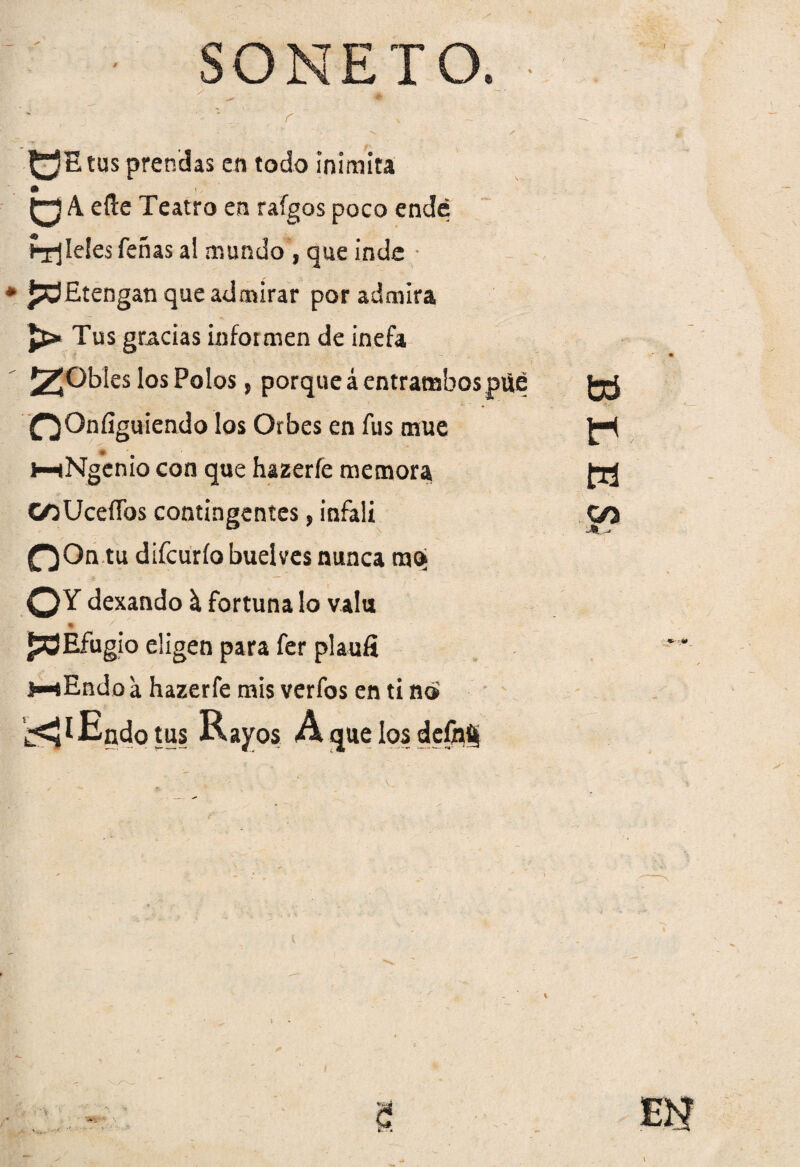 SONETO.
DE tus prendas en todo inimita
DA eſte Teatro en raſgos poco ende
FIeles ſeñas al mundo, que inde
REtengan que admirar por admira
A Tus gracias informen de ineſa
NObles los Polos, porque á entrambos pue
COnſiguiendo los Orbes en ſus mue
INgenio con que hazerſe memora
SUceſſos contingentes, infali
COn tu diſcurſo buelves nunca mo
OY dexando à fortuna lo valu
REfugio eligen para ſer plauſi
IEndo à hazerſe mis verſos en ti no
VIEndo tus Rayos A que los deſnu
BLES
EN